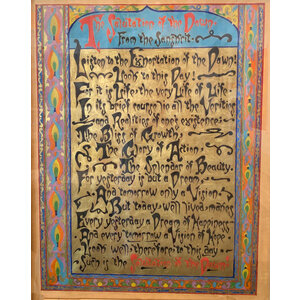 The Salutation of the Dawn
From the Sanskrit
Listen to the Exhortation of the Dawn!
Look to this Day!
For it is Life, the very Life of Life
In its brief course lie all the Verities
and Realities of our existence:
The Bliss of Growth
The Glory of Action
The Splendor of Beauty.
For yesterday is but a Dream
And tomorrow only a Vision
But today, well lived, makes
Every yesterday a Dream of Happiness
And every tomorrow a Vision of Hope
Look well, therefore, to this day
Such is the Salutation of the Dawn!